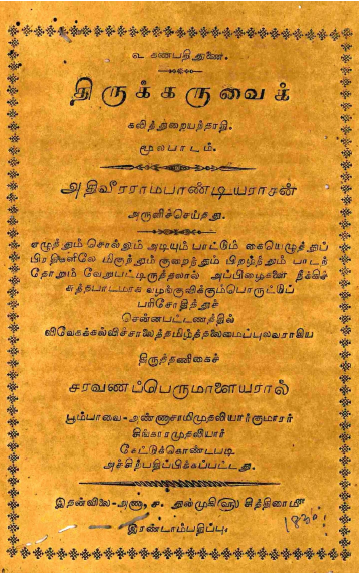 உ கணபதிதுணை.
திருக்கருவைக்
கலித்துறையந்தாதி.
மூலபாடம்.
அதிவீரராமபாண்டியராசன்
அருளிச்செய்தது.
எழுத்தும் சொல்லும் அடியும் பாட்டும் கையெழுத்துப்
பிரதிகளிலே மிகுந்தும் குறைந்தும் பிறழ்ந்தும் பாடந்
தோறும் வேறுபட்டிருத்தலால் அப்பிழைகளை நீக்கிச்
சுத்தபாடமாக வழங்குவிக்கும்பொருட்டுப்
பரிசோதித்துச்
சென்னபட்டணத்தில்
விவேகக்கல்விச்சாலைத்தமிழ்த்தலைமைப்புலவராகிய
திருத்தணிகைச்
சரவணப்பெருமாளையரால்
பூம்பாவை-அண்ணாசாமிமுதலியார்குமாரர்
சிங்காரமுதலியார்
கேட்டுக்கொண்டபடி
அச்சிற்பதிப்பிக்கப்பட்டது.
இதன்விலை-அணா, ச.
இரண்டாம்பதிப்பு.